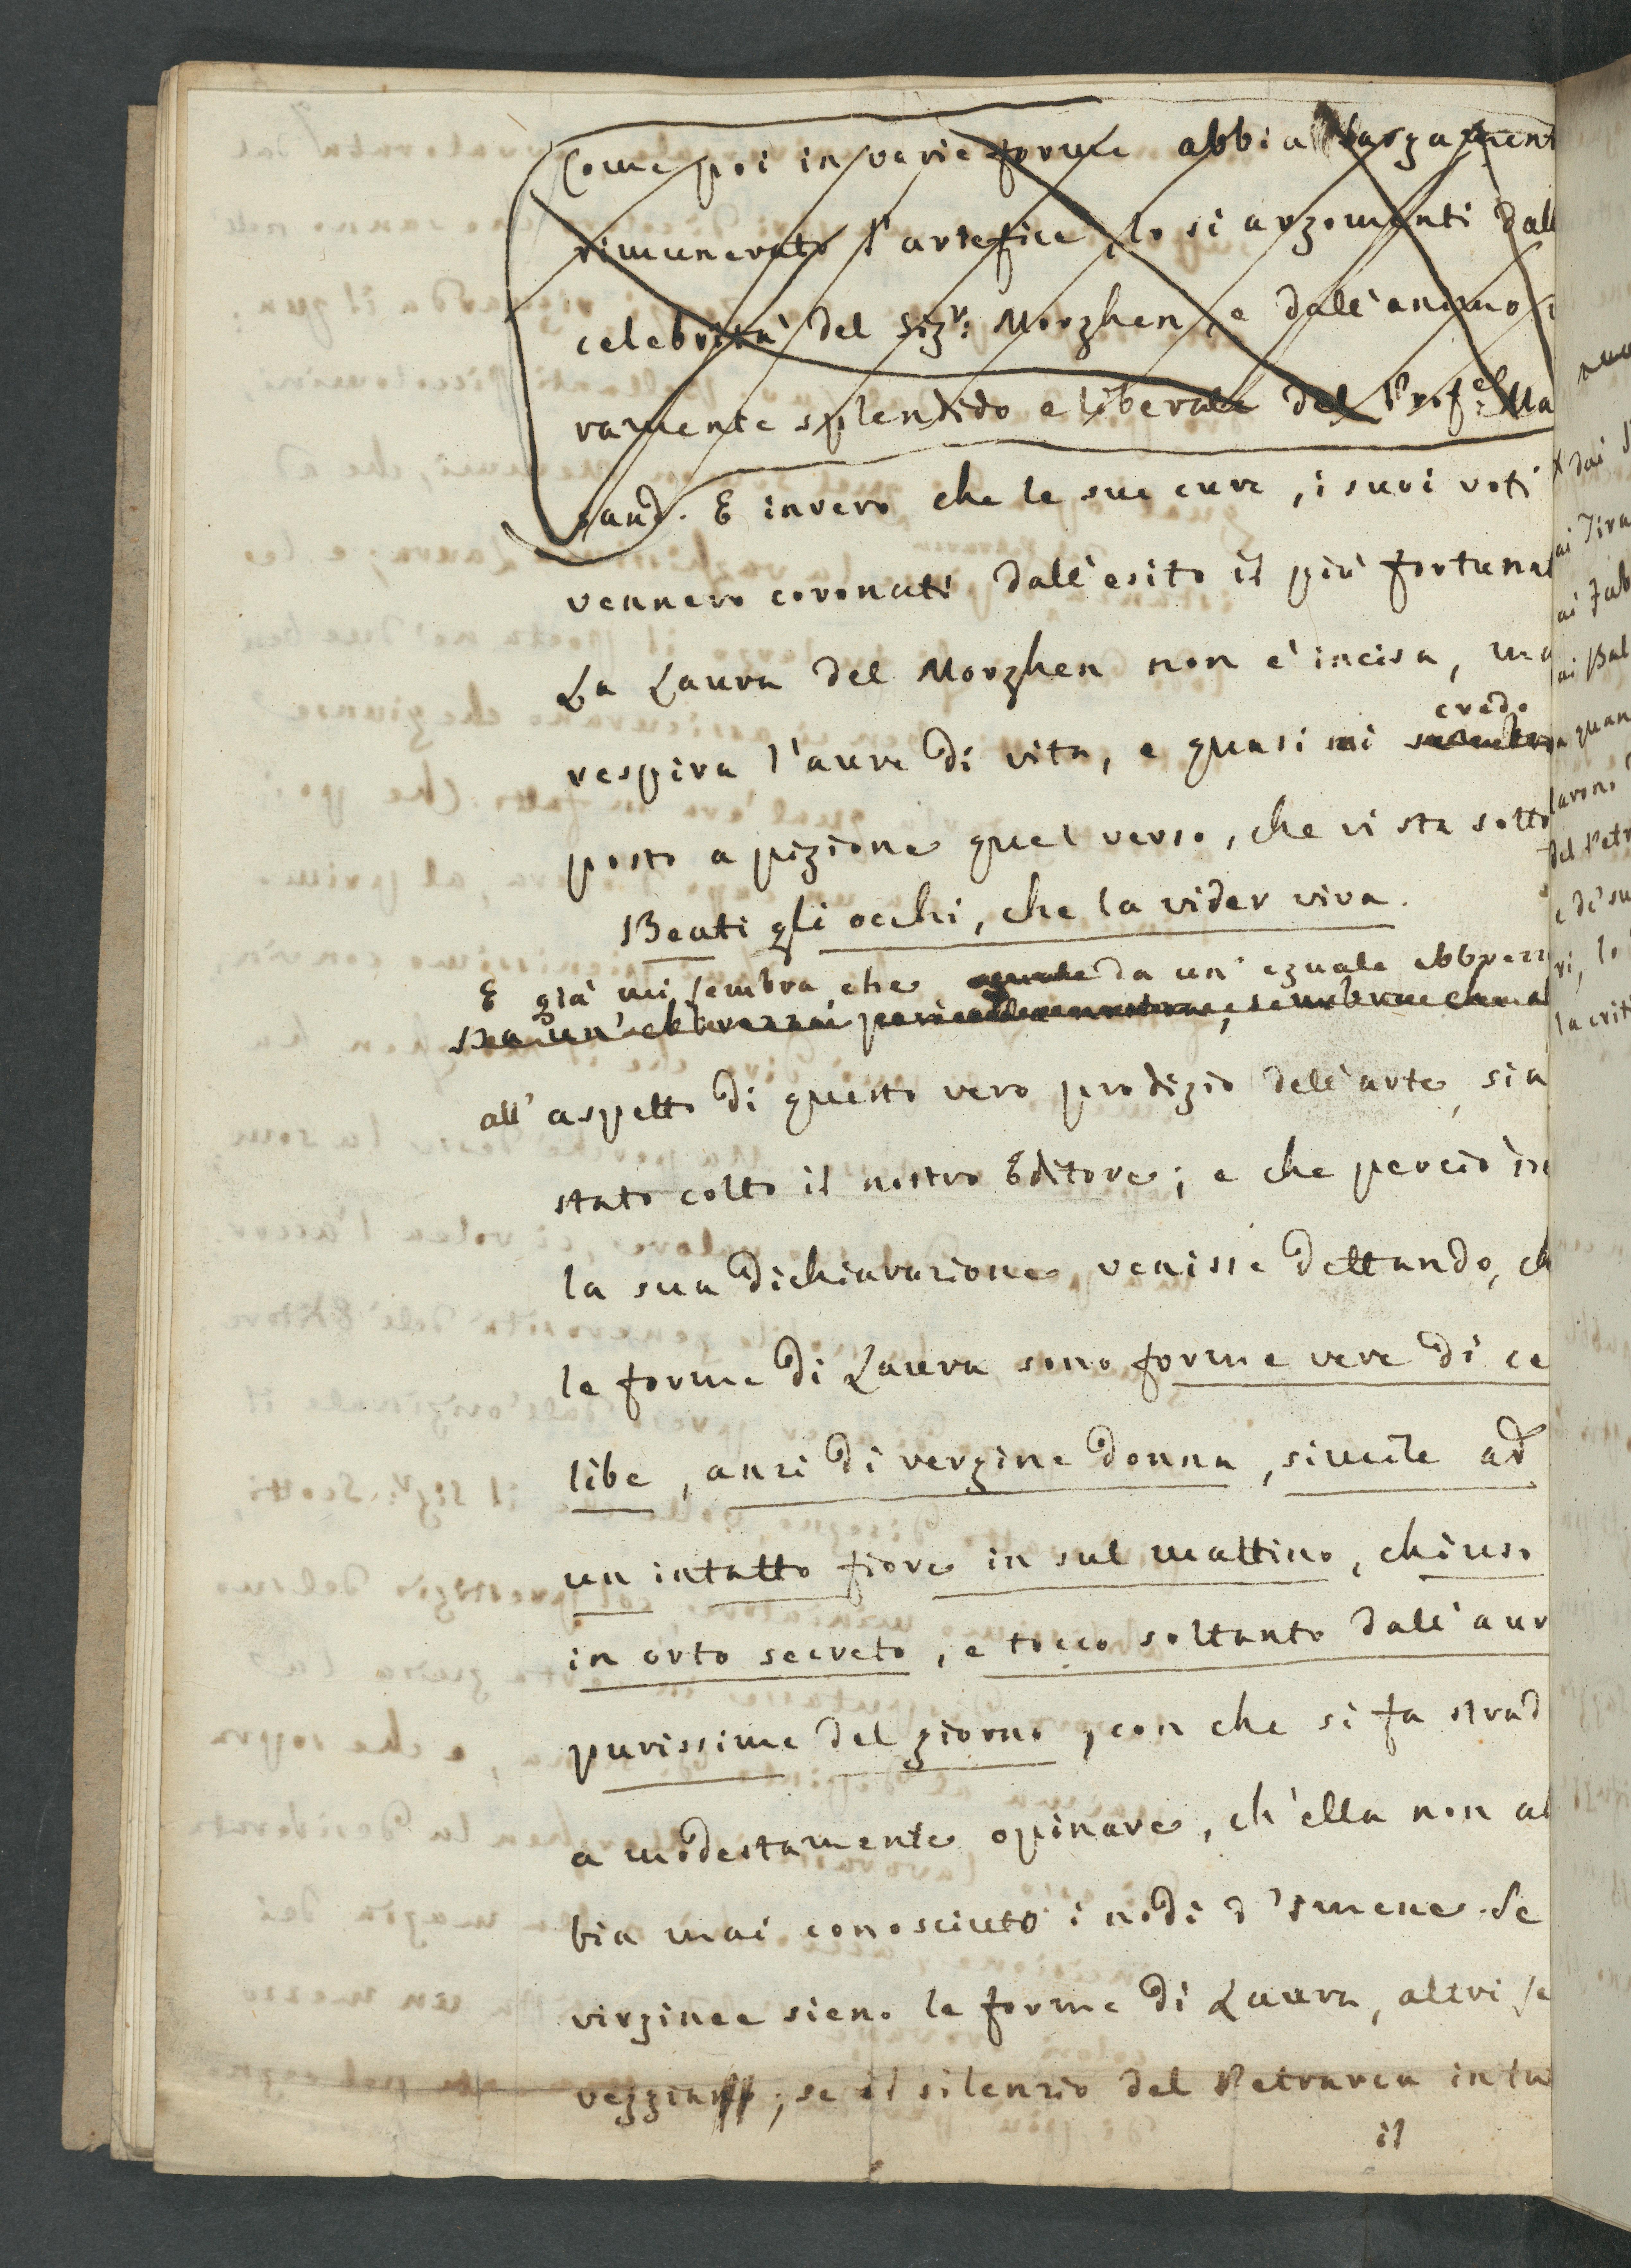 Come poi in varie forme abbia largament
rimunerato l'artefice, lo si argomenti dall
celebrità del Sigr: Morghen, e dall'animo
ramente splendido e liberale del Profe: Ma
sand. E invero che le sue cure, i suoi voti
vennero coronati dall'esito il più fortunat
La Laura del Morghen non è incisa, ma
credo
respira l'aure di vita, e quasi mi sembra
posto a pigione quel verso, che vi sta sotto
Beati gli occhi, che la vider viva.
E già mi sembra, che eguale da un' eguale ebbrezz
all' aspetto di questo vero prodigio dell'arte, sia
stato colto il nostro Editore; e che perciò in
la sua dichiarazione, venisse dettando, ch
le forme di Laura sono forme vere di ce
libe, anzi di vergine donna, simile ad
un intatto fiore in sul mattino, chiuso
in orto secreto, e tocco soltanto dall'aur
purissime del giorno, con che si fa strad
a modestamente opinare, ch'ella non ab
bia mai conosciuto i nodi d'Imene. Se
virginee sieno le forme di Laura, altri se
veggia; se il silenzio del Petrarca in tu
il
dai
ai Tira
ai Fab
ai Bal
quan
lavoro
del Petr
e de' su
ri, lo
la crit